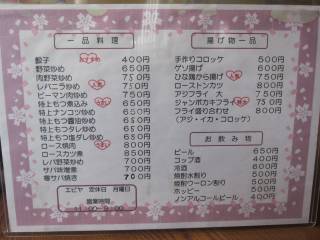 一品料理
餃子 400円
野菜炒め 650円
肉野菜炒め 750円
レバニラ炒め 750円
ピーマン肉炒め 750円
特上もつ煮込み 650円
特上ナンコツ炒め 650円
特上もつ醤油炒め 650円
特上もつタレ炒め 650円
特上もつ塩ダレ炒め 650円
ロース焼肉 800円
ロースカツ煮 850円
レバ野菜炒め 750円
サバ味噌煮 700円
寒サバ焼き 700円
エビヤ 定休日 月曜日
営業時間
揚げ物一品
手作りコロッケ 500円
ゲソ揚げ 600円
ひな鶏から揚げ 人気 750円
ローストンカツ 800円
アジフライ 大 750円
ジャンボカキフライ 750円
フライ盛り合わせ 800円
(アジ・イカ・コロッケ)
お飲み物
ビール 650円
コップ酒 400円
冷酒 600円
焼酎水割り 500円
焼酎ウーロン割り 500円
ホッピー 500円
ノンアルコールビール 400円